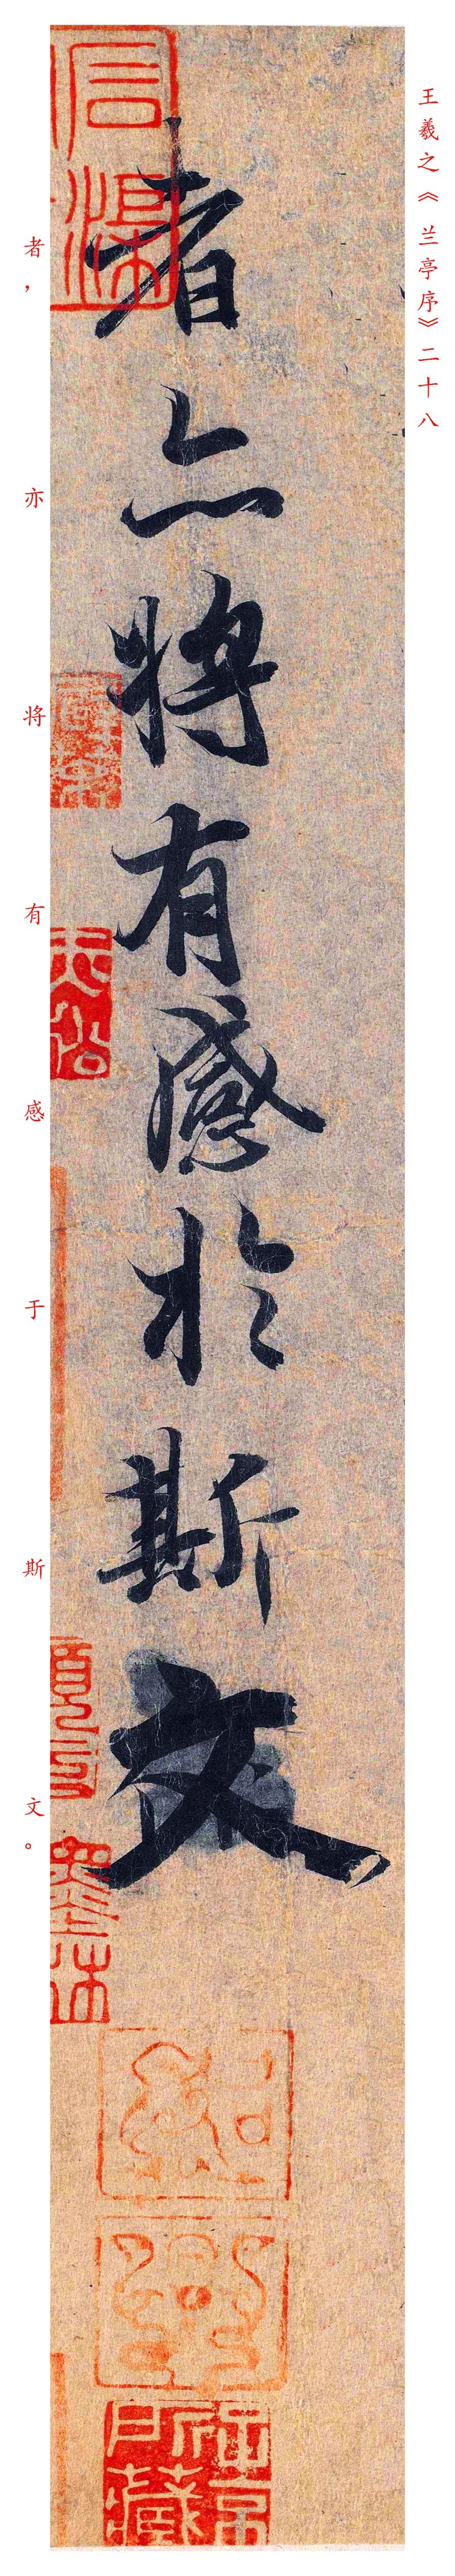 王羲之《兰亭序》二十八
者亦将有感於斯文
者，亦将有感于斯文。